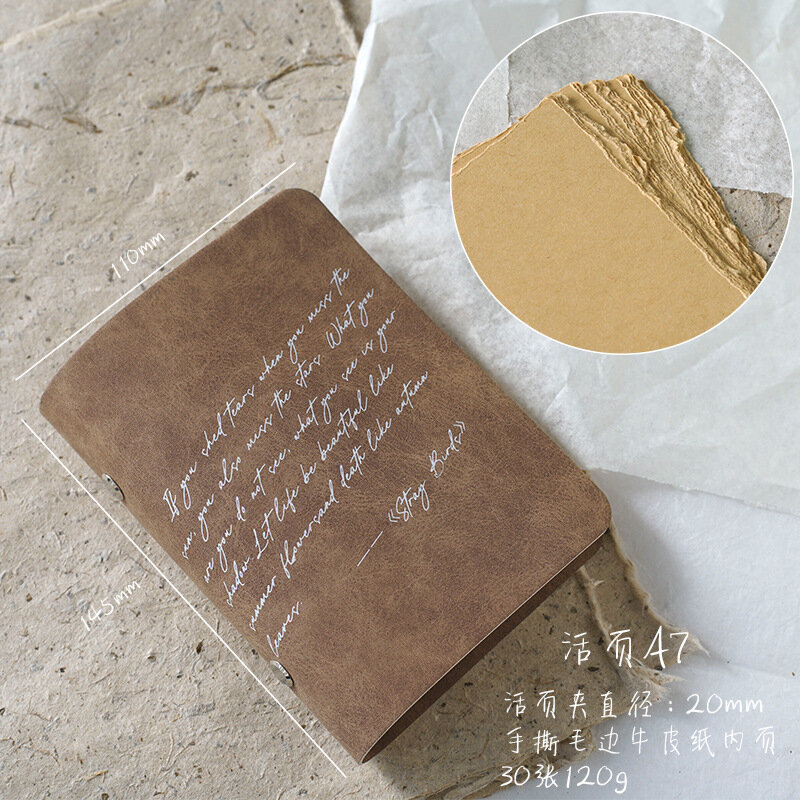 110mm
If you shed tears when you miss the
sun, you also miss the stars. What you
are you do not see, what you see is your
shadow. Let life be beautiful like
summer flowersand death like autumn
leaves.
— 《Stray Birds》
145mm
活页A7
活页夹直径：20mm
手撕毛边牛皮纸内页
30张120g